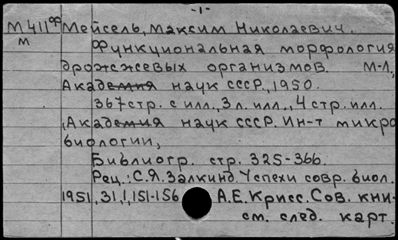 -1-
М411фф Мейсель, Максим Николаевич.
М
Функциональная морфология
дрожжевых организмов. М-Л,
Академия наук СССР, 1950.
367 стр. с илл., 3 л. илл., 4 стр. илл.
(Академия наук СССР. Ин-т микро
биологии,
Библиогр. стр. 325-366.
Рец.: С.Я. Залкинд Успехи совр. биол.
1951, 31, 1, 151-156 А.Е. Крисс. Сов. кни-
см. след. карт.